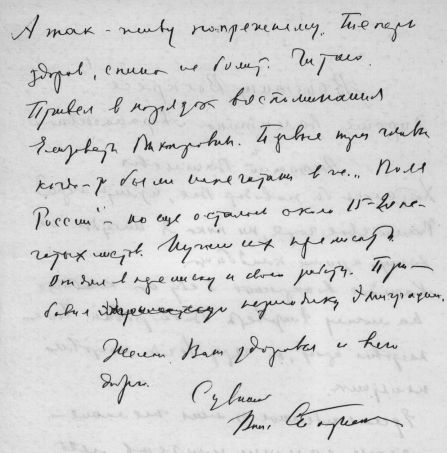 А так - живу по прежнему. Теперь
здоров, спина не болит. Читаю.
Привел в порядок воспоминания
Елизаветы Викторовны. Первые три главы
когда-то были напечатаны в
России" - но еще осталось около 15-20 пе-
чатных листов. Нужно их переписать.
Отдал в переписку и свою работу. При-
бавил периодику эмиграции.
Желаю Вам здоровья и всего
добра.
Ваш